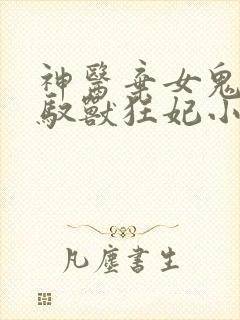 神醫棄女鬼
馭獸狂妃小
凡塵書生